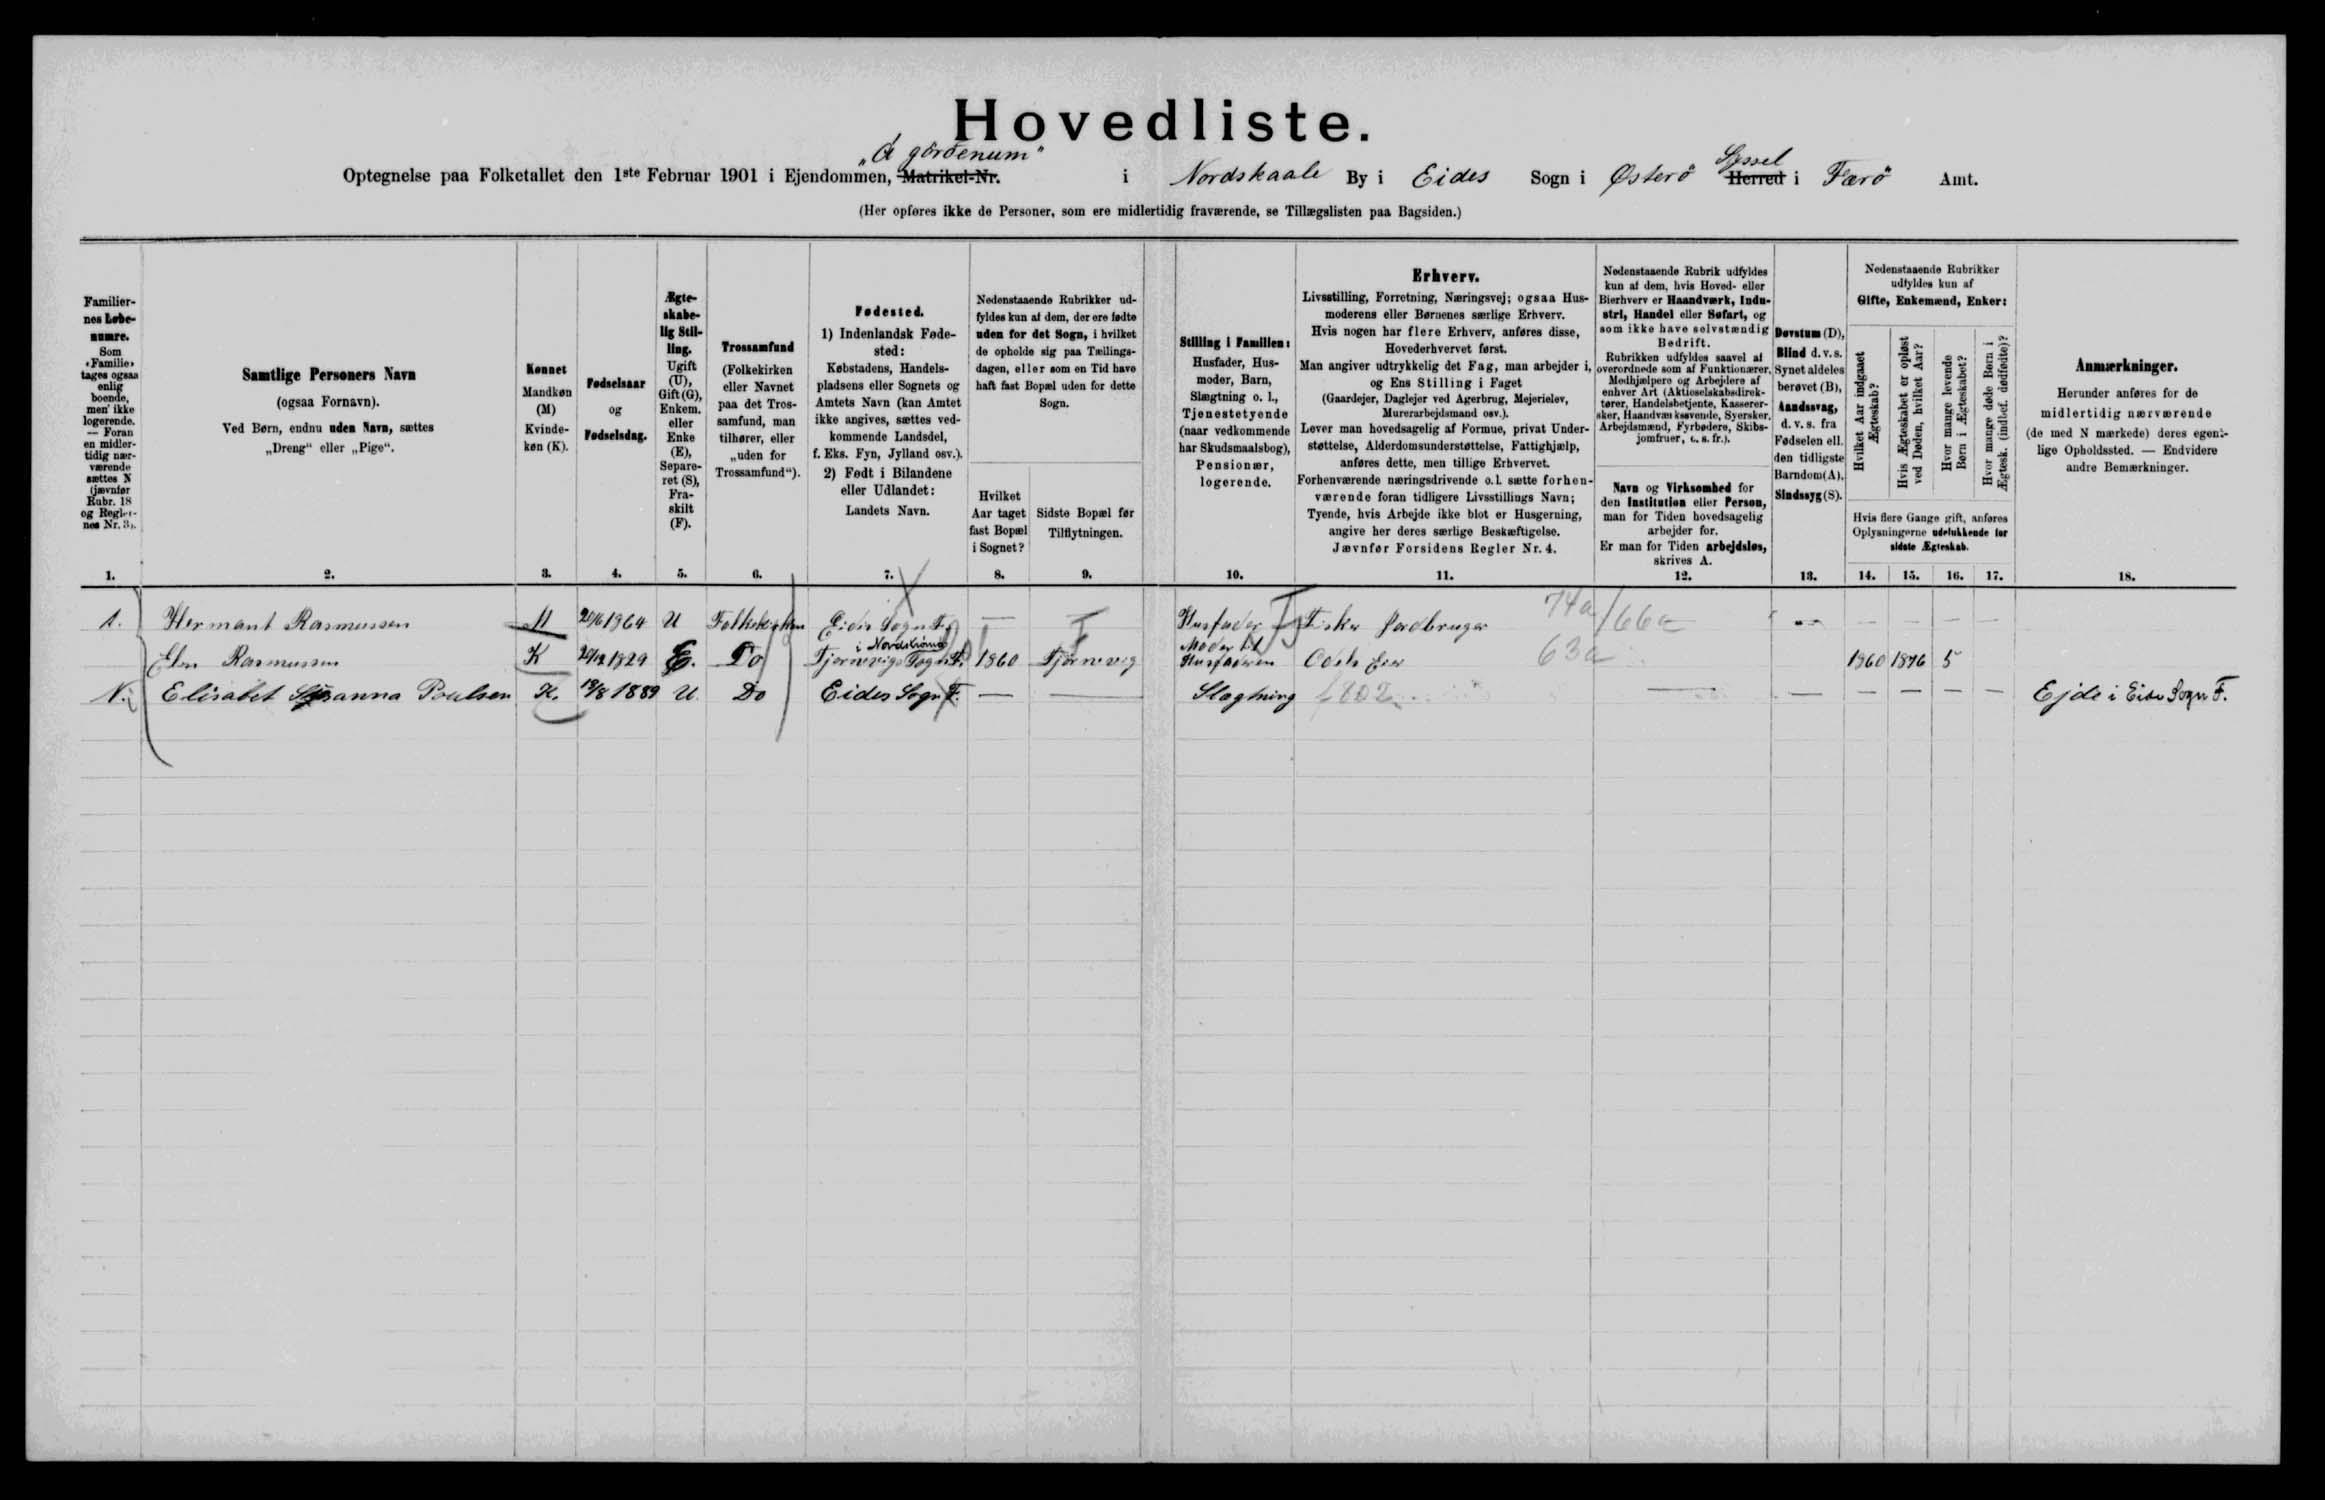 Hovedliste.
Optegnelse paa Folketallet den 1ste Februar 1901 i Ejendommen, Matrikel-Nr. „A görðenum" i Nordskaale By i Eides Sogn i Østerö Herred Syssel i Færö Amt.
(Her opføres ikke de Personer, som ere midlertidig fraværende, se Tillægslisten paa Bagsiden.)
Familiernes Løbenumre.
Som «Familie» tages ogsaa enlig boende, men ikke logerende. — Foran en midlertidig nærværende sættes N (jævnfør Rubr. 18 og Reglernes Nr. 3).
Samtlige Personers Navn
(ogsaa Fornavn).
Ved Børn, endnu uden Navn, sættes
„Dreng" eller „Pige".
Kønnet
Mandkøn (M)
Kvindekøn (K).
Fødselsaar
og
Fødselsdag.
Ægteskabelig Stilling.
Ugift (U), Gift (G), Enkem. eller Enke (E), Separeret (S), Fraskilt (F).
Trossamfund
(Folkekirken eller Navnet paa det Trossamfund, man tilhører, eller „uden for Trossamfund").
Fødested.
1) Indenlandsk Fødested:
Købstadens, Handelspladsens eller Sognets og Amtets Navn (kan Amtet ikke angives, sættes vedkommende Landsdel, f. Eks. Fyn, Jylland osv.).
2) Født i Bilandene eller Udlandet:
Landets Navn.
Nedenstaaende Rubrikker udfyldes kun af dem, der ere fødte uden for det Sogn, i hvilket de opholde sig paa Tællingsdagen, eller som en Tid have haft fast Bopæl uden for dette Sogn.
Hvilket Aar taget fast Bopæl i Sognet?
Sidste Bopæl før Tilflytningen.
Stilling i Familien:
Husfader, Husmoder, Barn, Slægtning o. l., Tjenestetyende (naar vedkommende har Skudsmaalsbog), Pensionær, logerende.
Erhverv.
Livsstilling, Forretning, Næringsvej; ogsaa Husmoderens eller Børnenes særlige Erhverv.
Hvis nogen har flere Erhverv, anføres disse, Hovederhvervet først.
Man angiver udtrykkelig det Fag, man arbejder i, og Ens Stilling i Faget
(Gaardejer, Daglejer ved Agerbrug, Mejerielev, Murerarbejdsmand osv.).
Lever man hovedsagelig af Formue, privat Understøttelse, Alderdomsunderstøttelse, Fattighjælp, anføres dette, men tillige Erhvervet.
Forhenværende næringsdrivende o.l. sætte forhenværende foran tidligere Livsstillings Navn;
Tyende, hvis Arbejde ikke blot er Husgerning, angive her deres særlige Beskæftigelse.
Jævnfør Forsidens Regler Nr. 4.
Nedenstaaende Rubrik udfyldes kun af dem, hvis Hoved- eller Bierhverv er Haandværk, Industri, Handel eller Søfart, og som ikke have selvstændig Bedrift.
Rubrikken udfyldes saavel af overordnede som af Funktionærer, Medhjælpere og Arbejdere af enhver Art (Aktieselskabsdirektører, Handelsbetjente, Kasserersker, Haandværkssvende, Syersker, Arbejdsmænd, Fyrbødere, Skibsjomfruer, o. s. fr.).
Navn og Virksomhed for den Institution eller Person, man for Tiden hovedsagelig arbejder for.
Er man for Tiden arbejdsløs, skrives A.
Døvstum (D), Blind d. v. s. Synet aldeles berøvet (B), Aandssvag, d. v. s. fra Fødselen ell. den tidligste Barndom (A), Sindssyg (S).
Nedenstaaende Rubrikker udfyldes kun af
Gifte, Enkemænd, Enker:
Hvilket Aar indgaaet Ægteskab?
Hvis Ægteskabet er opløst ved Døden, hvilket Aar?
Hvor mange levende Børn i Ægteskabet?
Hvor mange døde Børn i Ægtesk. (indbef. dødfødte)?
Hvis flere Gange gift, anføres Oplysningerne udelukkende for sidste Ægteskab.
Anmærkninger.
Herunder anføres for de midlertidig nærværende (de med N mærkede) deres egentlige Opholdssted. — Endvidere andre Bemærkninger.
1. 2. 3. 4. 5. 6. 7. 8. 9. 10. 11. 12. 13. 14. 15. 16. 17. 18.
1. Hermant Rasmussen M 1864 U Folkekirken Eides Sogn F. — Husfader Fisker Jordbruger 74a/66a — — — — —
Elen Rasmussen K 1829 E. Do i Nordströmö Tjørnevigs Sogn F. 1860 Tjörnevig Moder til Husfaderen Odels Eier 63a 1860 1876 5
N. Elisabet Susanna Poulsen K. 19/8 1889 U. Do Eides Sogn F. — — Slægtning — — — — — — Ejde i Eide Sogn F.